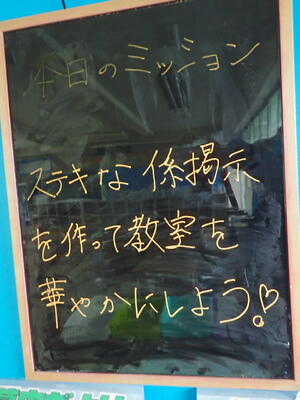 本日のミッション
ステキな係掲示
を作って教室を
華やかにしよう!♡